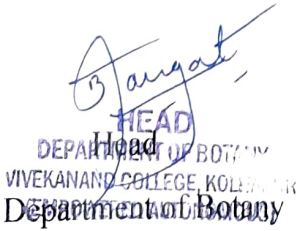 HEAD
Head
DEPARTMENT OF BOTANY
VIVEKANAND COLLEGE, KOLHAPUR
Department of Botany